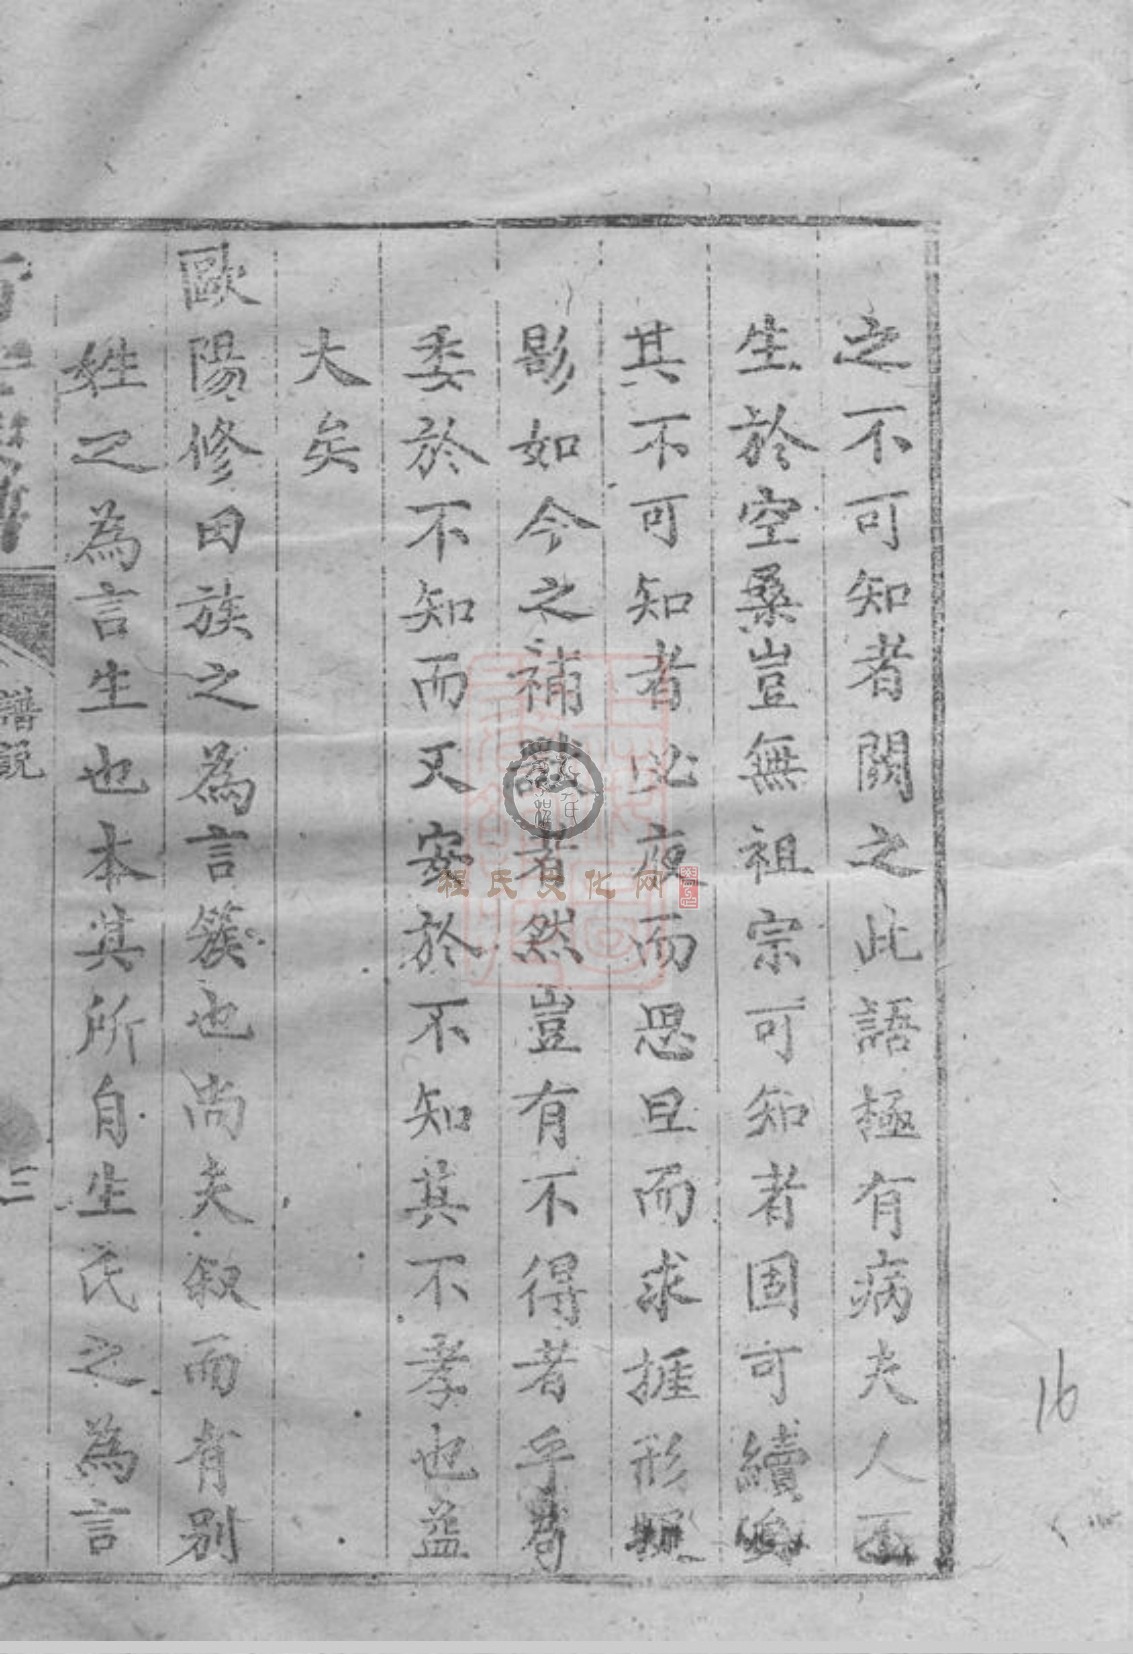 之不可知者闕之此語極有病夫人不
生於空桑豈無祖宗可知者固可續
其不可知者必夜而思旦而求捱形
影如今之補獃者然豈有不得者乎苟
委於不知而又安於不知其不孝也益
大矣
歐陽修曰族之為言簇也尚夫叙而有别
姓之為言生也本其所自生氏之為言
譜説
三
程氏文化网
16